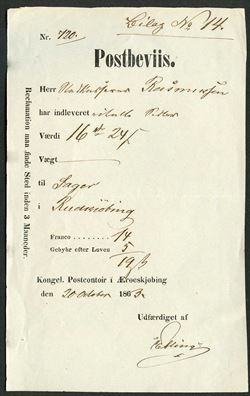 Bilag No 14.
Nr. 720.
Postbeviis.
Herr Rasmussen
har indleveret
Værdi 16 24
Vægt
til Sager
i Rudkiøbing
Franco 14
Gebyhr efter Loven 5
19
Kongel. Postcontoir i Æroeskjøbing
den 20 October 1863.
Udfærdiget af
Reclamation maa finde Sted inden 3 Maaneder.